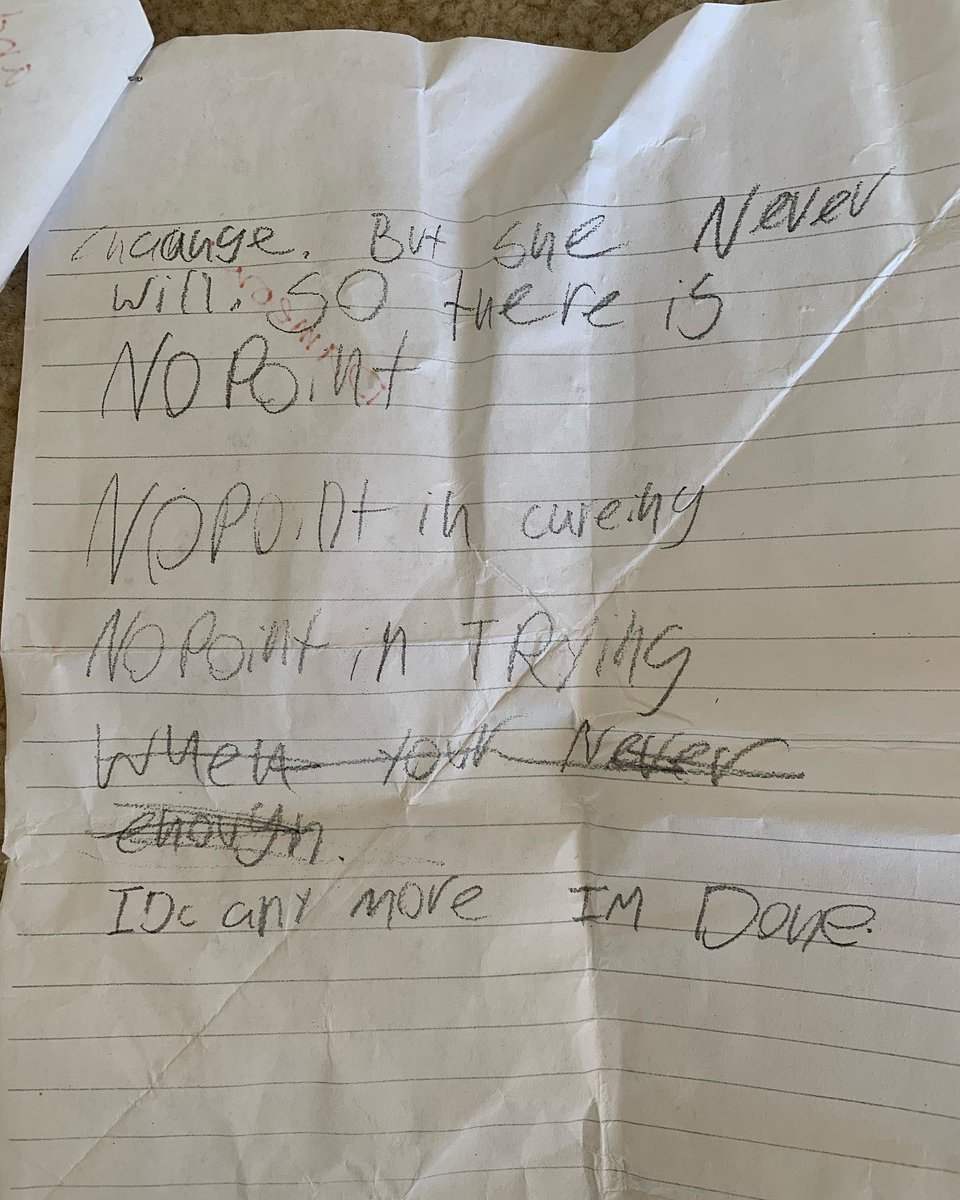 change. But she Never
will. SO there is
NO POint
NO POint in careing
NO POint in TRying
When your Never
enough.
IDc any more IM Done.